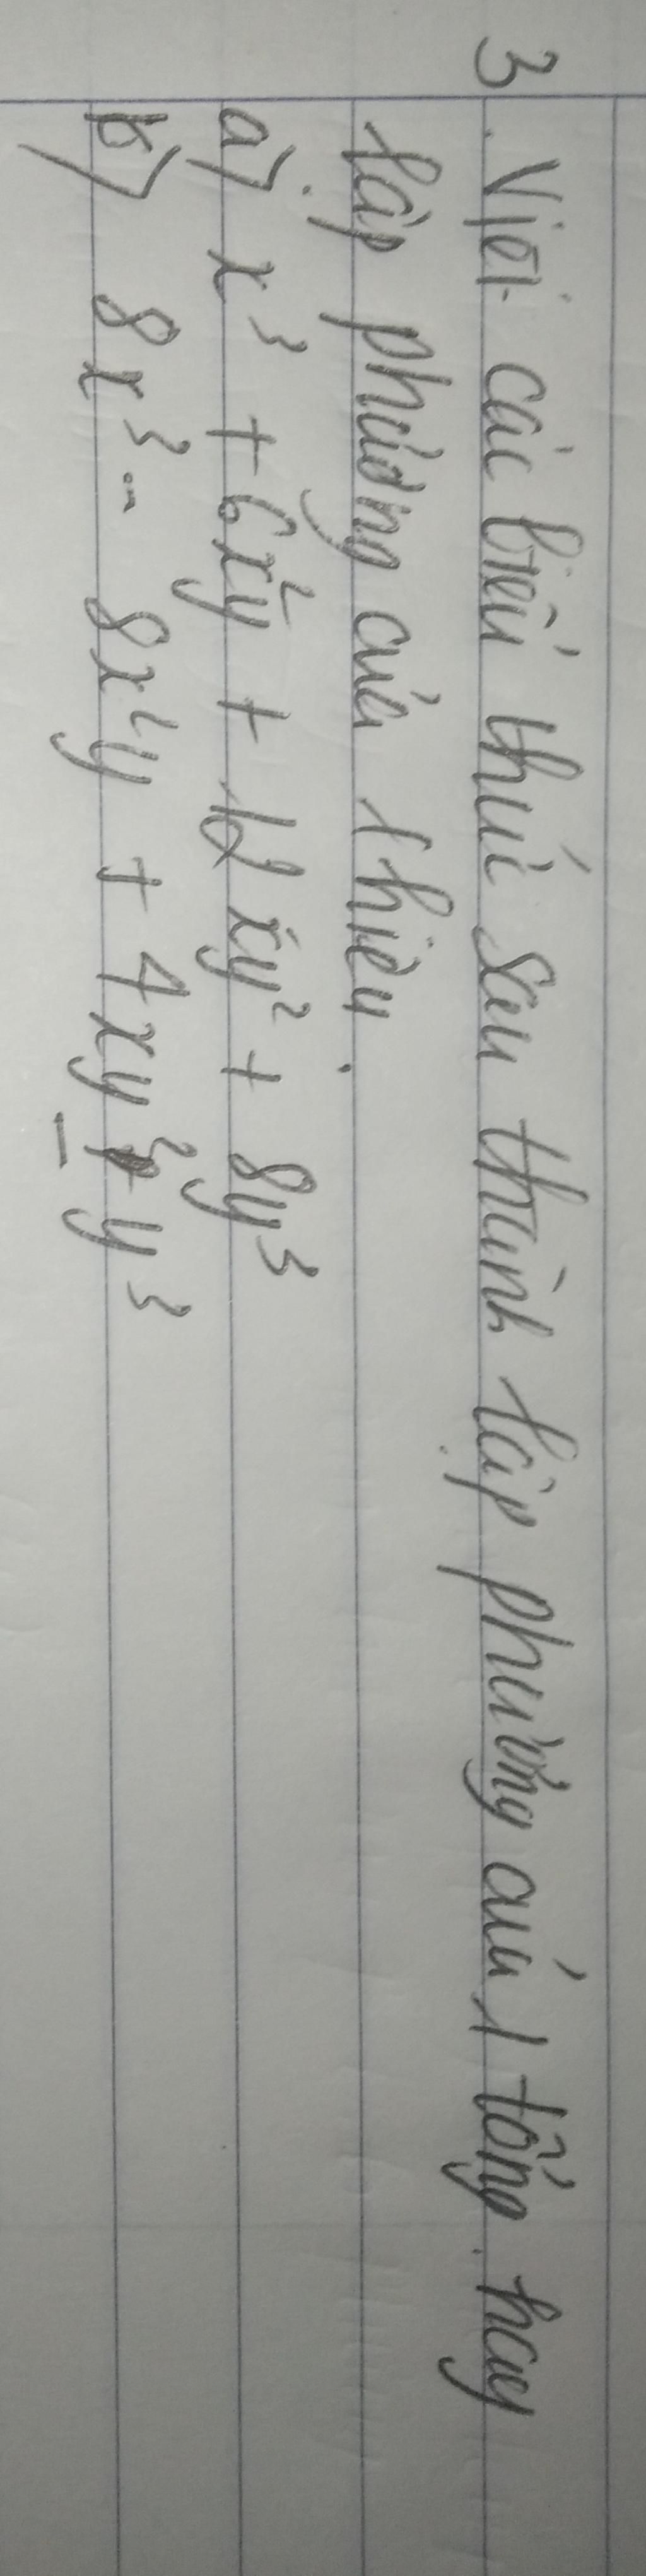 3. Viết các biểu thức sau thành lập phương của 1 tổng hay
lập phương của 1 hiệu.
a) x³ + 6x²y + 12xy² + 8y³
b) 8x³ - 8x²y + 4xy² - y³